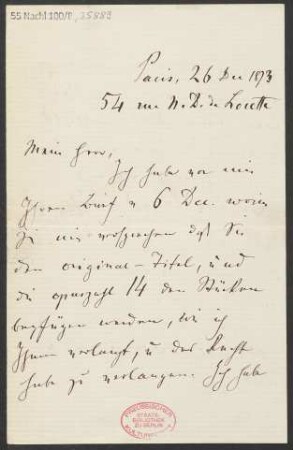 55 Nachl 100/B,
Paris, 26 Dec 1873
54 rue N. D. de Lorette
Mein Herr,
Ich habe vor mir
Ihren Brief v 6 Dec. worin
Sie mir versprechen daß Sie
den original-Titel, und
die opuszahl 14 den Stücken
beyfügen werden, wie ich
Ihnen verlangt, u das Recht
habe zu verlangen. Ich habe
PREUSSISCHER
STAATS-
BIBLIOTHEK
ZU BERLIN
KULTURBESITZ